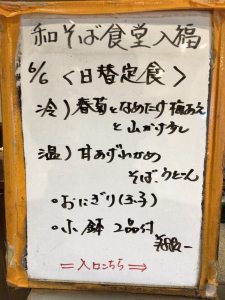 和そば食堂入福
6/6 <日替定食>
冷) 春菊となめたけ梅あえ
と山かけ
温) 甘あげわかめ
そば、うどん
。おにぎり
。小鉢 2品付
⇒入口こちら⇒